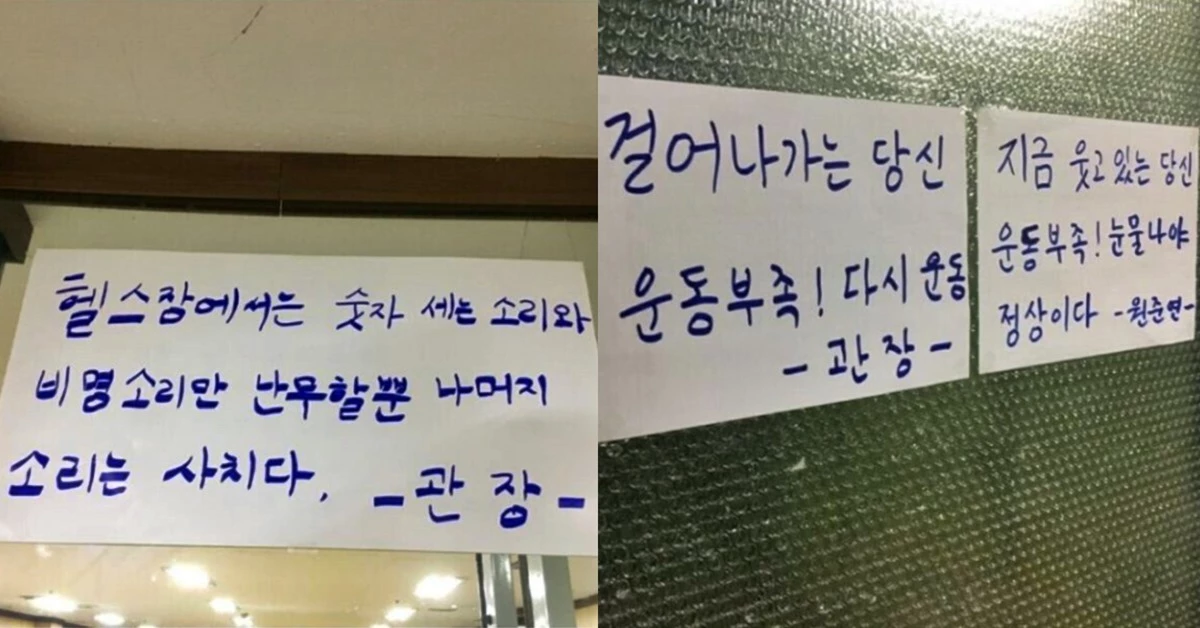 헬스장에서는 숫자 세는 소리와
비명소리만 난무할뿐 나머지
소리는 사치다.
-관장-
걸어나가는 당신
운동부족! 다시 운동
-관장-
지금 웃고 있는 당신
운동부족! 눈물나야
정상이다 -원준연-